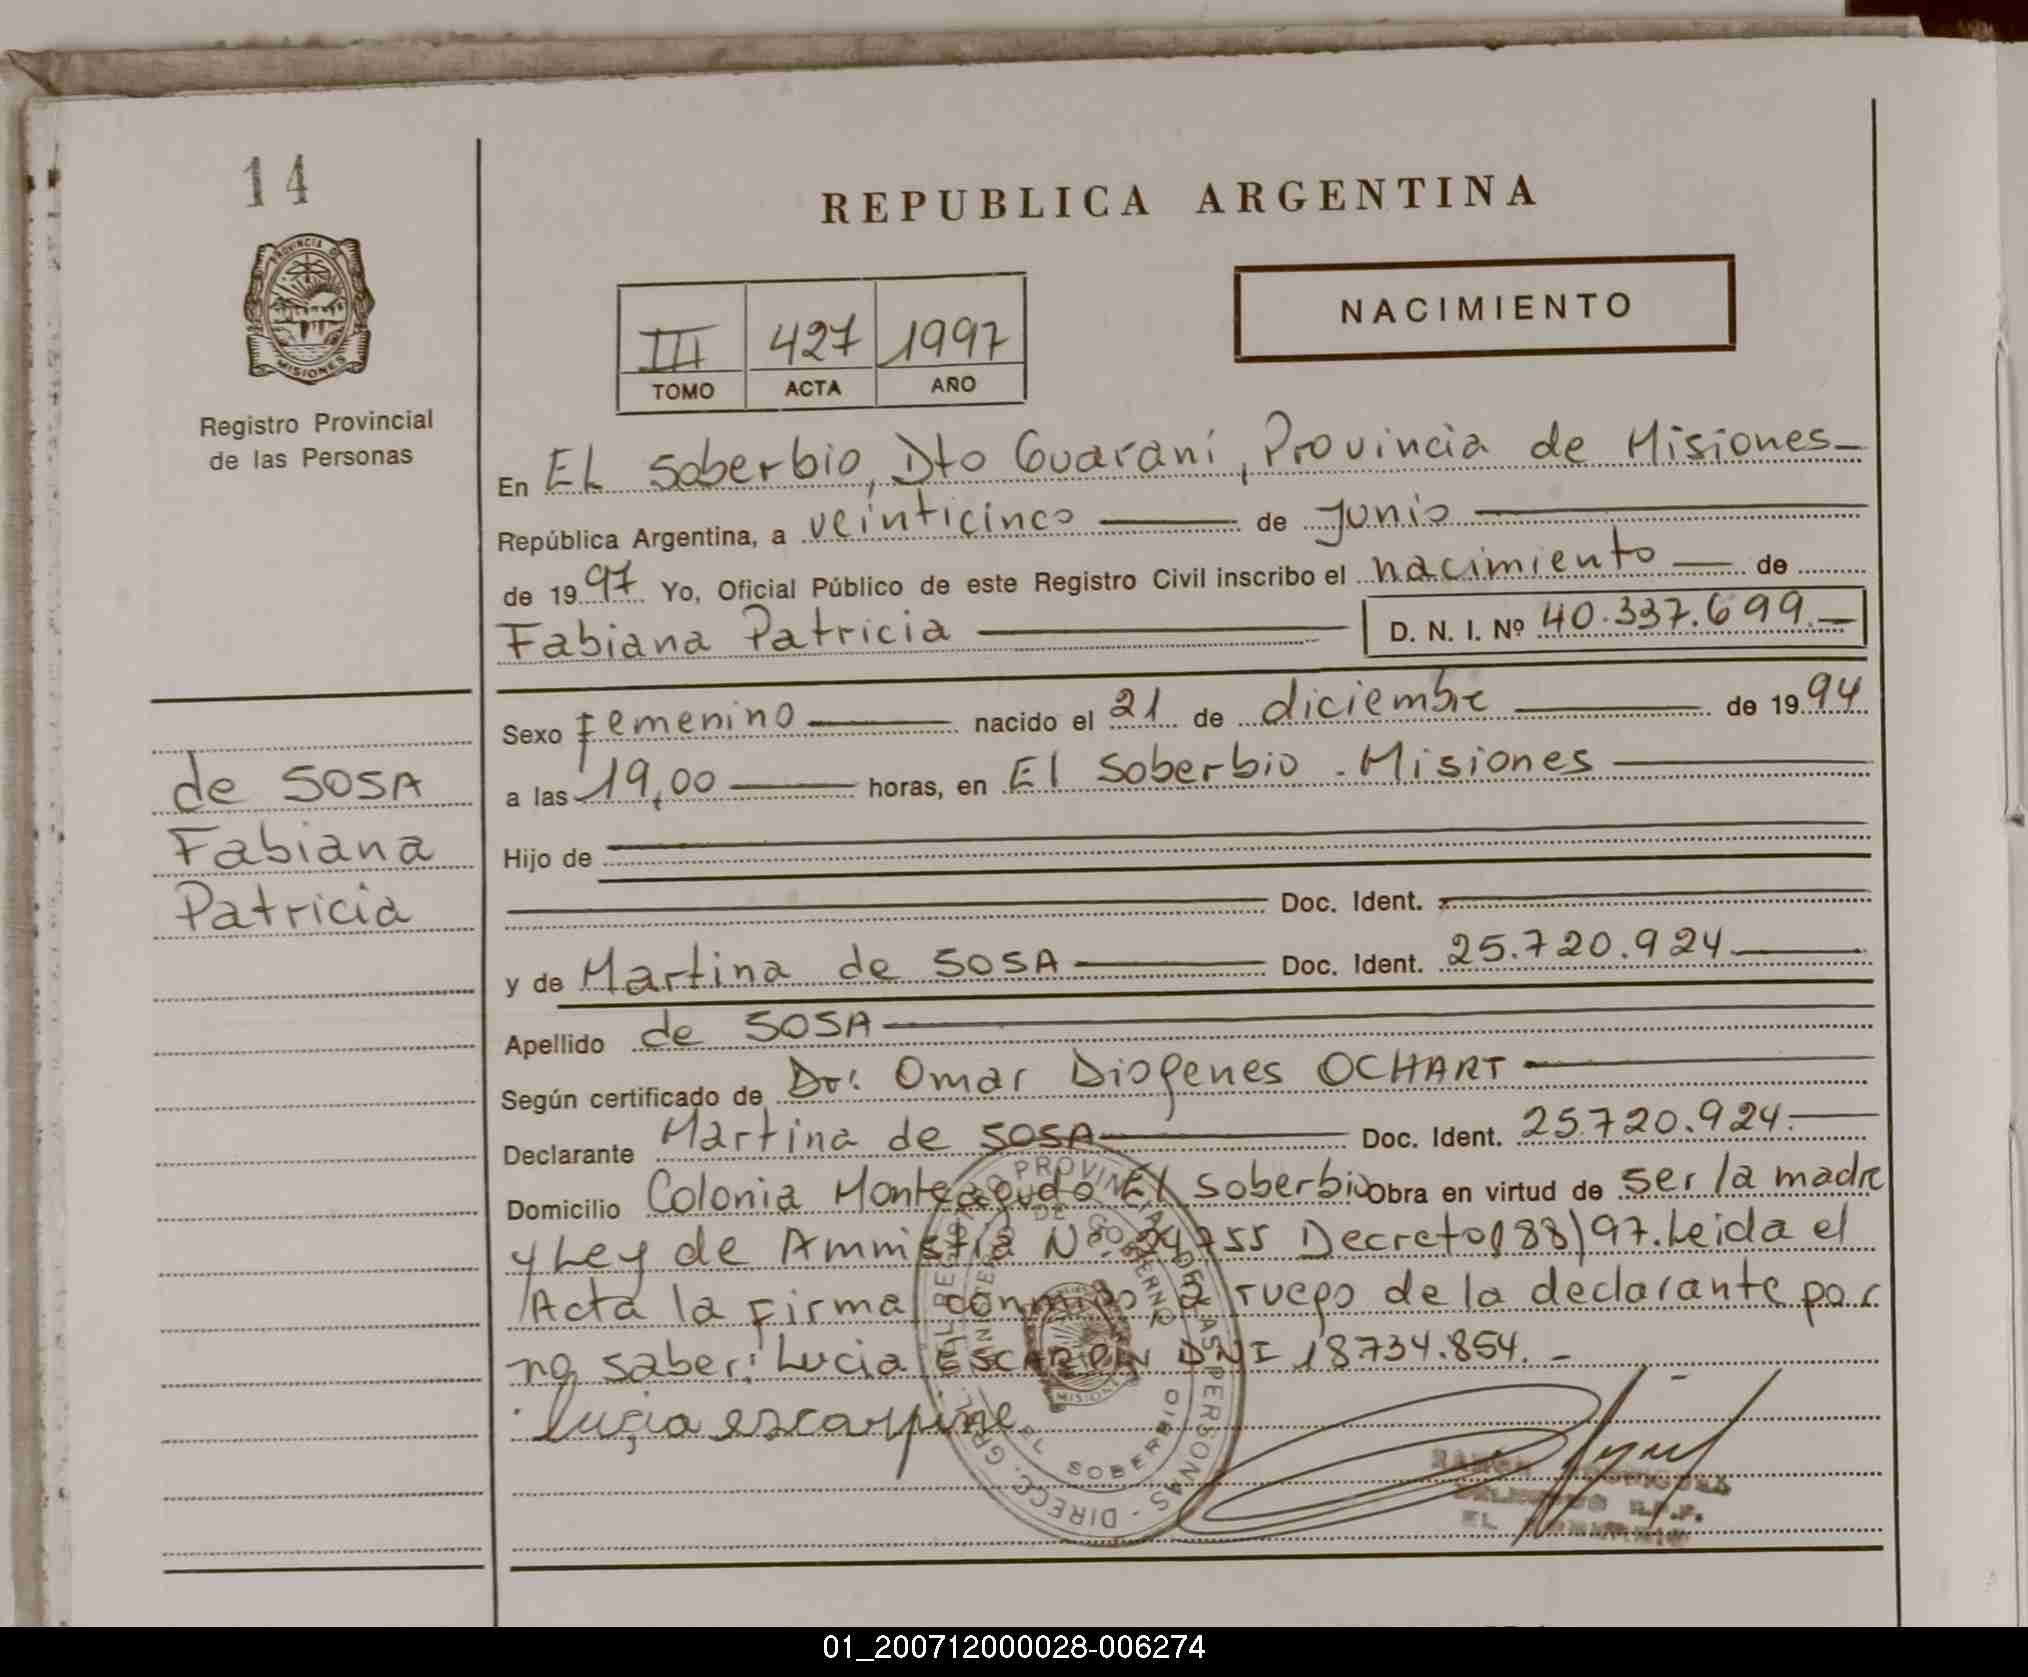 14
REPUBLICA ARGENTINA
PROVINCIA DE
MISIONES
Registro Provincial
de las Personas
III 427 1997
TOMO ACTA AÑO
NACIMIENTO
En EL Soberbio, Dto Guaraní, Provincia de Misiones
República Argentina, a veinticinco de Junio
de 1997 Yo, Oficial Público de este Registro Civil inscribo el nacimiento de
Fabiana Patricia D. N. I. Nº 40.337.699.
Sexo Femenino nacido el 21 de diciembre de 1994
a las 19,00 horas, en El Soberbio - Misiones
de SOSA
Fabiana
Patricia
Hijo de
Doc. Ident.
y de Martina de SOSA Doc. Ident. 25.720.924
Apellido de SOSA
Según certificado de Dr: Omar Diogenes OCHART
Declarante Martina de SOSA Doc. Ident. 25.720.924.
Domicilio Colonia Monteagudo El Soberbio Obra en virtud de ser la madre
y Ley de Amnistía Nº 24755 Decreto 188/97. Leida el
Acta la firma conmigo, a ruego de la declarante por
no saber: Lucia DNI 18.734.854. -
lucia escarpine
DE LAS PERSONAS - DIRECC. GRAL.
MISIONES
EL SOBERBIO
01_200712000028-006274